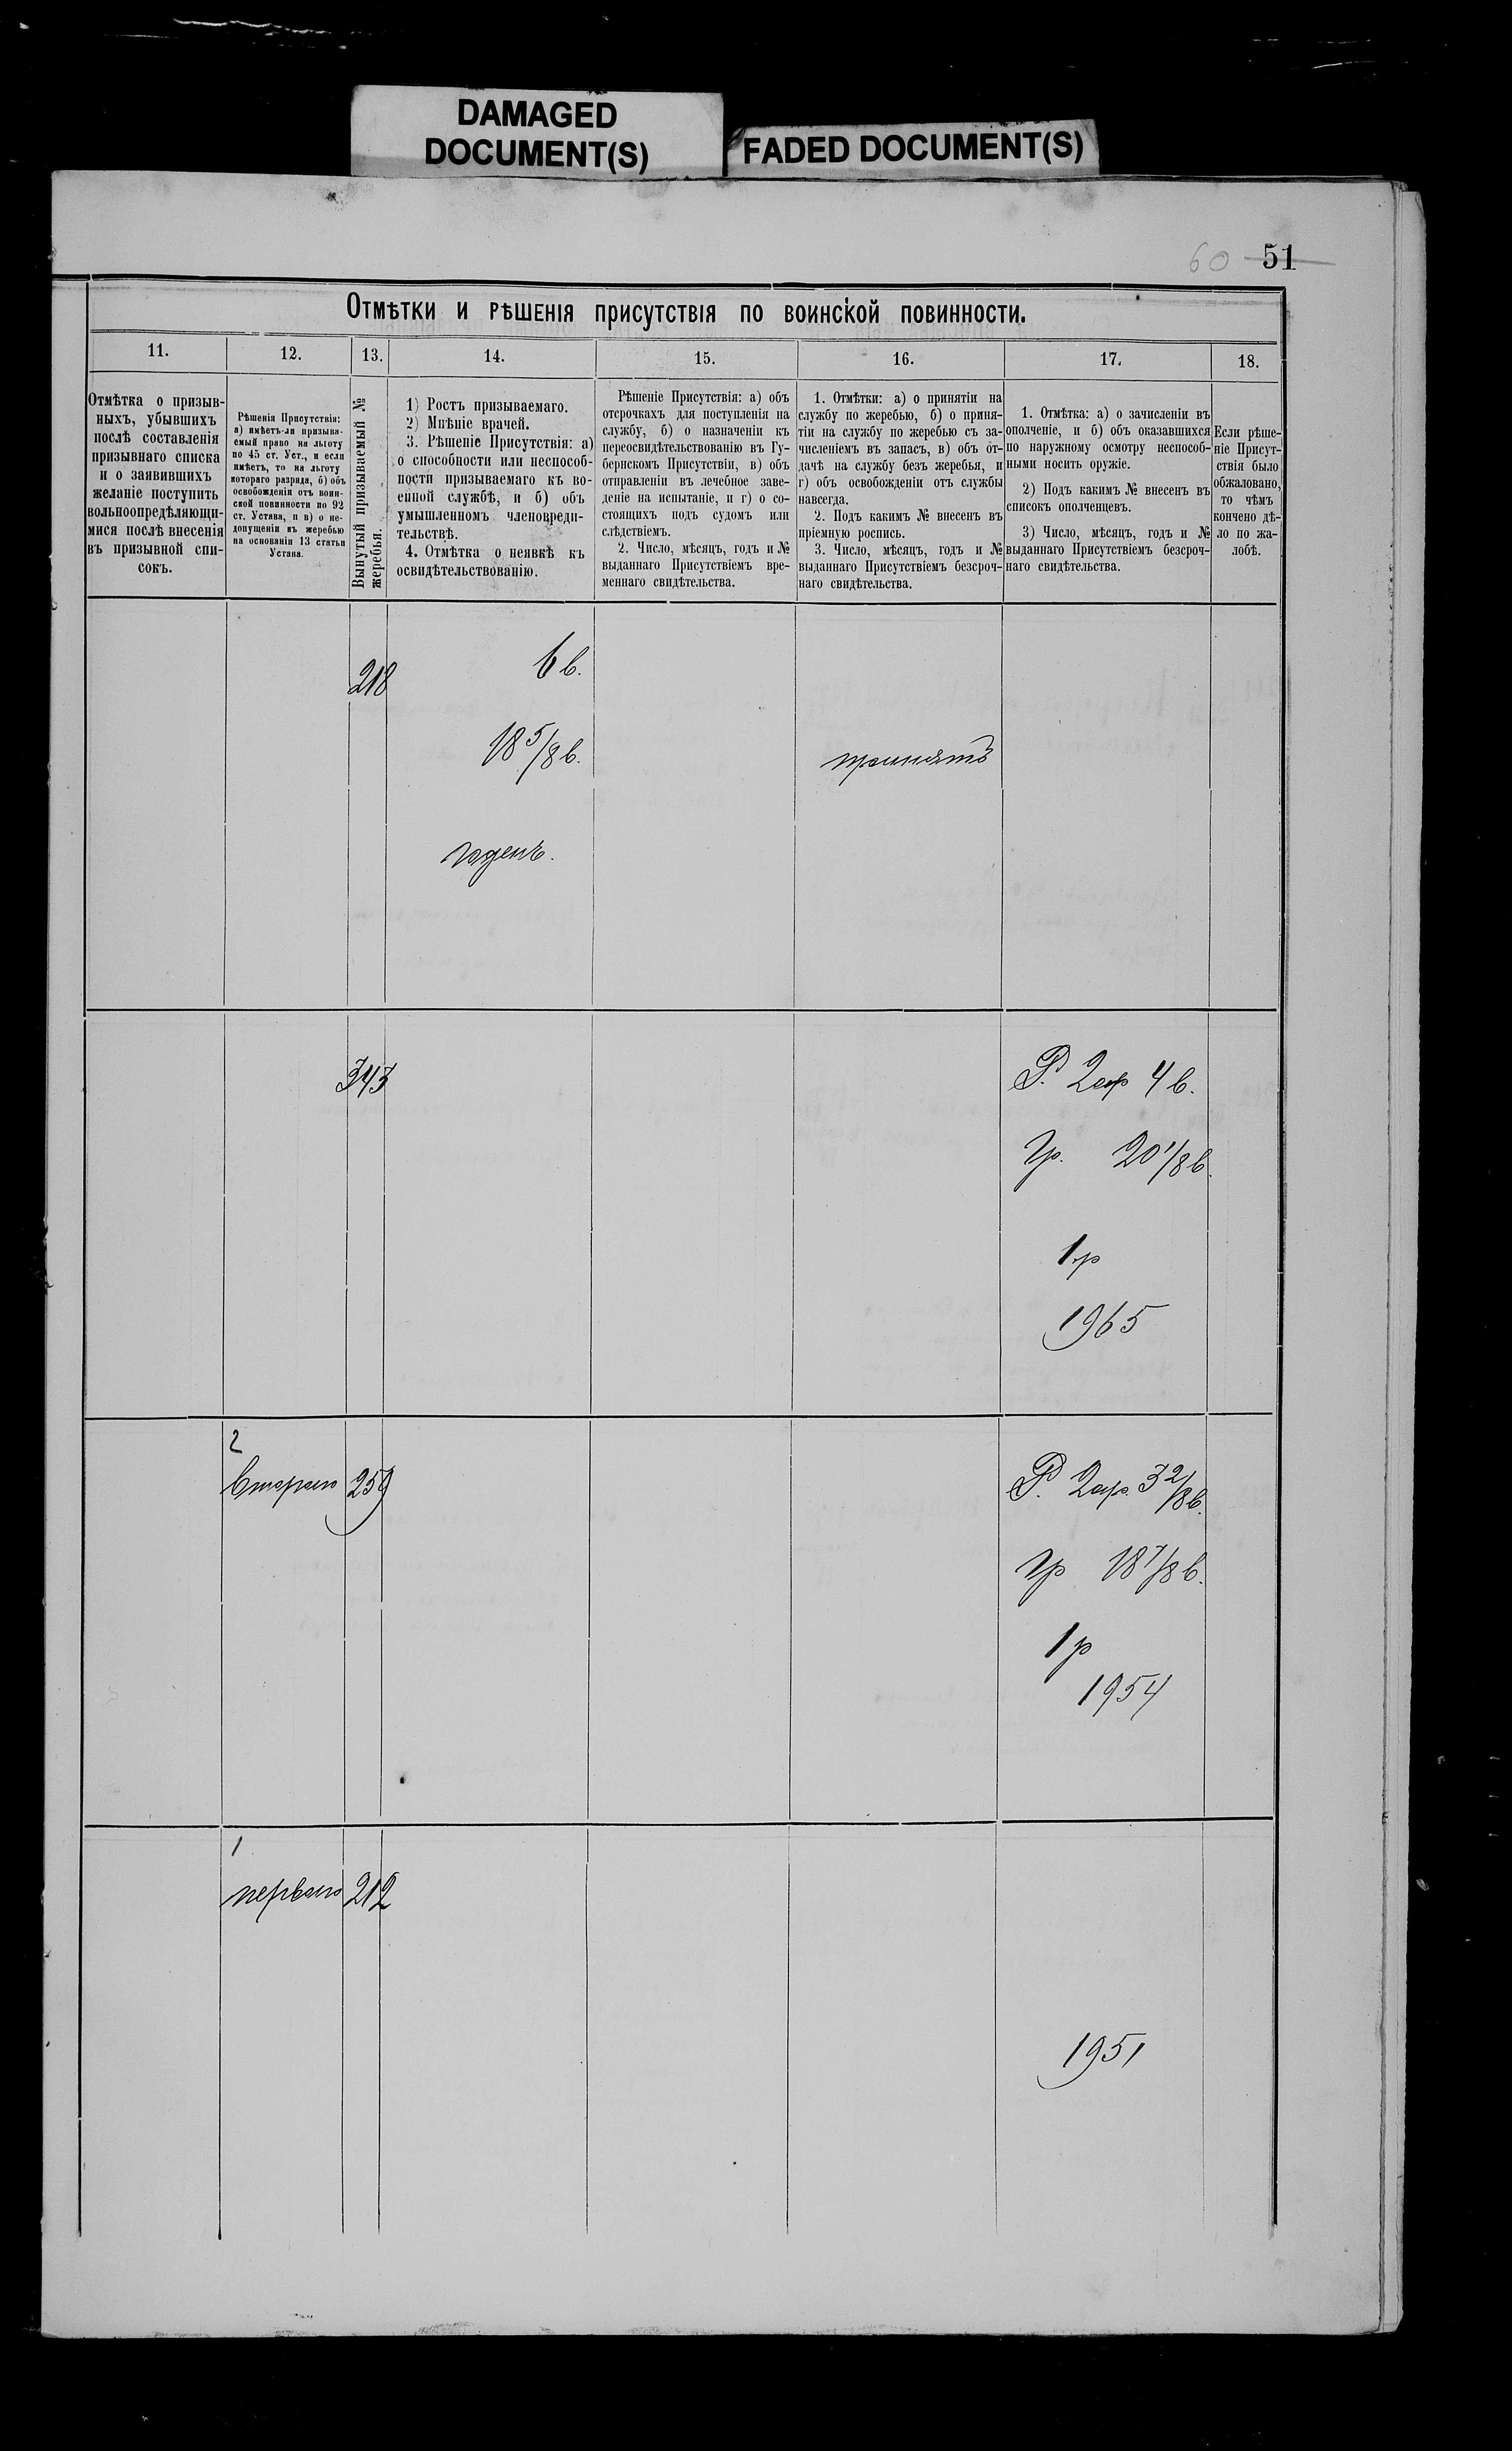 DAMAGED
DOCUMENT(S)
FADED DOCUMENT(S)
60 51
Отмѣтки и рѣшенія присутствія по воинской повинности.
11.
12.
13.
14.
15.
16.
17.
18.
Отмѣтка о призыв-
ныхъ, убывшихъ
послѣ составленія
призывнаго списка
и о заявившихъ
желаніе поступить
вольноопредѣляющи-
мися послѣ внесенія
въ призывной спи-
сокъ.
Рѣшенія Присутствія:
а) имѣетъ-ли призыва-
емый право на льготу
по 45 ст. Уст., и если
имѣетъ, то на льготу
котораго разряда, б) объ
освобожденіи отъ воин-
ской повинности по 92
ст. Устава, и в) о не-
допущеніи къ жеребью
на основаніи 13 статьи
Устава.
Вынутый призываемый №
жеребья.
1) Ростъ призываемаго.
2) Мнѣніе врачей.
3. Рѣшеніе Присутствія: а)
о способности или неспособ-
ности призываемаго къ во-
енной службѣ, и б) объ
умышленномъ членовреди-
тельствѣ.
4. Отмѣтка о неявкѣ къ
освидѣтельствованію.
Рѣшеніе Присутствія: а) объ
отсрочкахъ для поступленія на
службу, б) о назначеніи къ
переосвидѣтельствованію въ Гу-
бернскомъ Присутствіи, в) объ
отправленіи въ лечебное заве-
деніе на испытаніе, и г) о со-
стоящихъ подъ судомъ или
слѣдствіемъ.
2. Число, мѣсяцъ, годъ и №
выданнаго Присутствіемъ вре-
меннаго свидѣтельства.
1. Отмѣтки: а) о принятіи на
службу по жеребью, б) о приня-
тіи на службу по жеребью съ за-
численіемъ въ запасъ, в) объ от-
дачѣ на службу безъ жеребья, и
г) объ освобожденіи отъ службы
навсегда.
2. Подъ какимъ № внесенъ въ
пріемную роспись.
3. Число, мѣсяцъ, годъ и №
выданнаго Присутствіемъ безсроч-
наго свидѣтельства.
1. Отмѣтка: а) о зачисленіи въ
ополченіе, и б) объ оказавшихся
по наружному осмотру неспособ-
ными носить оружіе.
2) Подъ какимъ № внесенъ въ
списокъ ополченцевъ.
3) Число, мѣсяцъ, годъ и №
выданнаго Присутствіемъ безсроч-
наго свидѣтельства.
Если рѣше-
ніе Присут-
ствія было
обжаловано,
то чѣмъ
кончено дѣ-
ло по жа-
лобѣ.
218
6 в.
18 5/8 в.
годенъ.
принятъ
343
Р. 2 ар 4 в.
Гр. 20 1/8 в.
1 р
1965
2
втораго
259
Р. 2 ар. 3 2/8 в.
Гр 18 7/8 в.
1 р
1954
1
перваго
212
1951